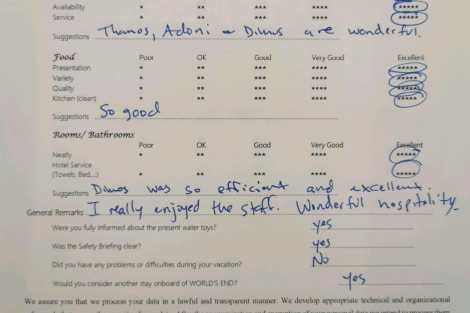 Availability * ** *** **** *****
Service * ** *** **** *****
Suggestions Thanos, Adoni & Dimos are wonderful.
Food Poor OK Good Very Good Excellent
Presentation * ** *** **** *****
Variety * ** *** **** *****
Quality * ** *** **** *****
Kitchen (clean) * ** *** **** *****
Suggestions So good
Rooms/ Bathrooms
Poor OK Good Very Good Excellent
Neatly * ** *** **** *****
Hotel Service
(Towels, Bed,...) * ** *** **** *****
Suggestions Dimos was so efficient and excellent.
General Remarks I really enjoyed the staff. Wonderful hospitality
Were you fully informed about the present water toys? yes
Was the Safety Briefing clear? yes
Did you have any problems or difficulties during your vacation? No
Would you consider another stay onboard of WORLD'S END? yes
We assure you that we process your data in a lawful and transparent manner. We develop appropriate technical and organizational